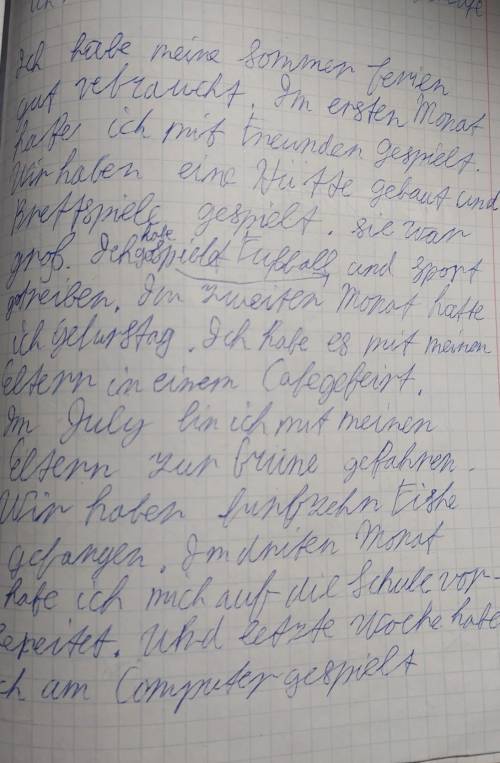 Ich habe meine Sommer ferien
gut vebraucht. Im ersten Monat
hatte ich mit Freunden gespielt.
Wir haben eine Hütte gebaut und
Brettspiele gespielt. sie war
groß. Ich habe gespielt Fußball und Sport
getreiben. Im zweiten Monat hatte
ich Geburstag. Ich habe es mit meinen
Eltern in einem Cafegefeirt.
Im July bin ich mit meinen
Eltern zur Grüne gefahren.
Wir haben funfzehn Fishe
gefangen. Im driten Monat
habe ich mich auf die Schule vor-
bereitet. Und letzte Woche habe
ich am Computer gespielt